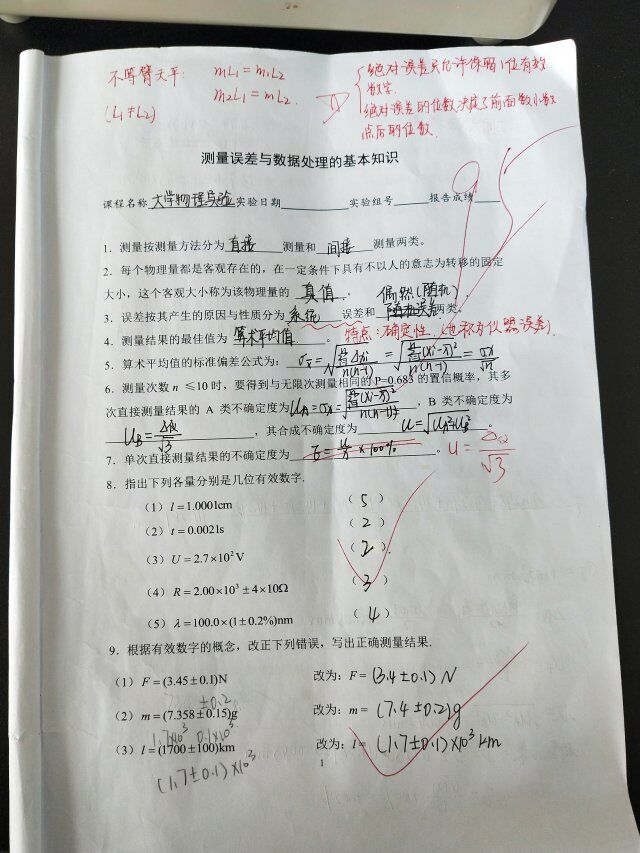 不等臂天平: mL₁ = m₁L₂
m₂L₁ = mL₂.
(L₁≠L₂)
绝对误差只允许保留1位有效
数字.
绝对误差的位数决定了前面数小数
点后的位数.
测量误差与数据处理的基本知识
课程名称 大学物理实验 实验日期 实验组号 报告成绩
1. 测量按测量方法分为 直接 测量和 间接 测量两类。
2. 每个物理量都是客观存在的,在一定条件下具有不以人的意志为转移的固定
大小,这个客观大小称为该物理量的 真值 . 偶然(随机)
3. 误差按其产生的原因与性质分为 系统 误差和 随机误差 两类。
4. 测量结果的最佳值为 算术平均值 。 特点:确定性.(也称为仪器误差).
5. 算术平均值的标准偏差公式为:
6. 测量次数 n ≤10 时,要得到与无限次测量相同的 P=0.683 的置信概率,其多
次直接测量结果的 A 类不确定度为 ,B 类不确定度为
,其合成不确定度为 。
7. 单次直接测量结果的不确定度为 。
8. 指出下列各量分别是几位有效数字.
(1) l = 1.0001cm (5)
(2) t = 0.0021s (2)
(3) U = 2.7×10²V (2)
(4) R = 2.00×10³ ± 4×10Ω (3)
(5) λ = 100.0×(1±0.2%)nm (4)
9. 根据有效数字的概念,改正下列错误,写出正确测量结果.
(1) F = (3.45±0.1)N 改为: F = (3.4±0.1) N
±0.2
(2) m = (7.358±0.15)g 改为: m = (7.4±0.2)g
1.7×10³ 0.1×10³
(3) l = (1700±100)km 改为: l = (1.7±0.1)×10³ km
(1.7±0.1)×10³